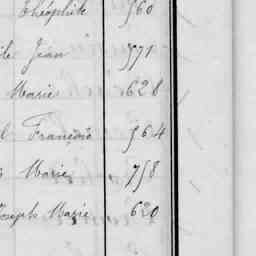 Théophile 560
Jean 571
Marie 628
François 564
Marie 758
Joseph Marie 620